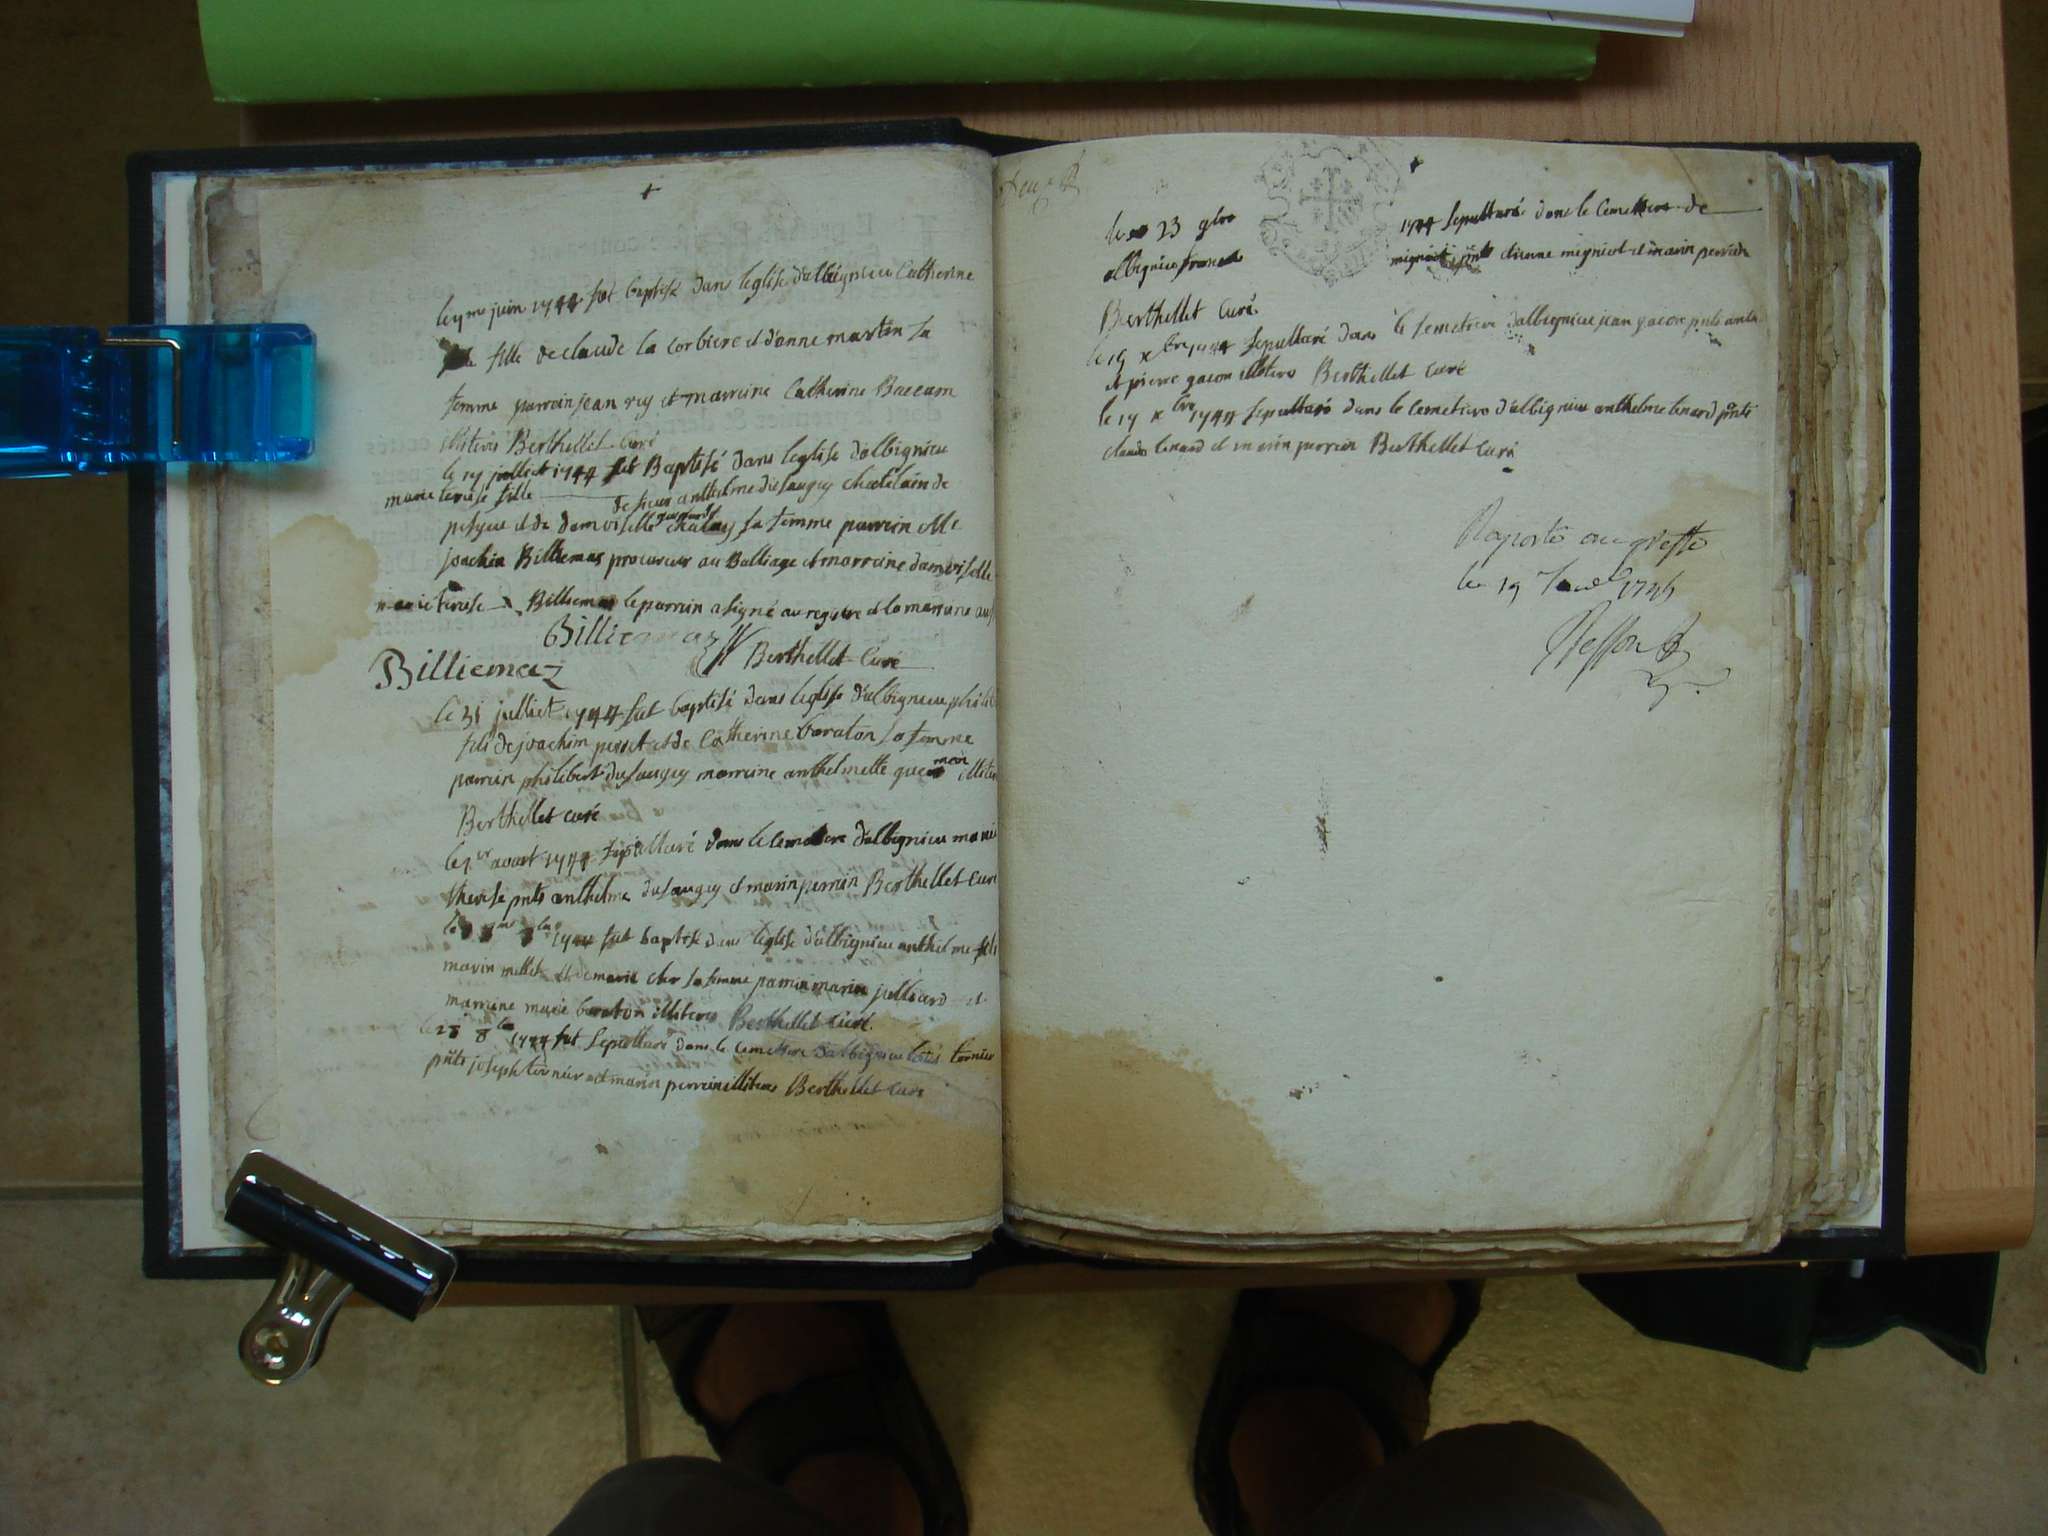 juin 1744 fut baptisé dans leglise dalbignieu Catherine
fille de claude la corbiere et d'anne martin sa
femme parrain jean rey et marraine Catherine
illiteres Berthellet curé
julliet 1744 fut Baptisé dans leglise dalbignieu
marie terese fille de sieur anthelme dusaugey chatelain de
peysieu et de damoiselle sa femme parrain Mr
joachim Billiemaz procureur au Balliage et marraine damoiselle
marie terese Billiemaz le parrain a signé au registre et la marraine aussi
Billiemaz
Billiemaz Berthellet Curé
le 31 julliet 1744 fut baptisé dans leglise d'albignieu
fils de joachim perret et de Catherine baraton sa femme
parrain philibert dusaugey marraine anthelmette
Berthellet curé
aoust 1744 sepulturé dans le cemettere d'albignieu marie
therese pnts anthelme dusaugey et marin perrin Berthellet Curé
1744 fut baptisé dans leglise d'albignieu anthelme fils
marin mellet et de marie cher sa femme parrain marin julliard et
marraine marie baraton illiteres Berthellet Curé.
le 28 8bre 1744 fut Sepulturé dans le cemettere dalbignieu
pnts joseph et marin perrin illiteres Berthellet curé
le 23 9bre 1744 sepulturé dans le Cemettere de
albignieu pnts etienne migniot et marin perrin
Berthellet Curé
le 15 xbre 1744 sepulturé dans le semetiere dalbignieu jean gacon pnts
et pierre gacon illiteres Berthellet curé
xbre 1744 sepulturé dans le Cemetiere d'albignieu anthelme lenard pnts
claude lenard et marin perrin Berthellet Curé
Raporté au greffe
le 19